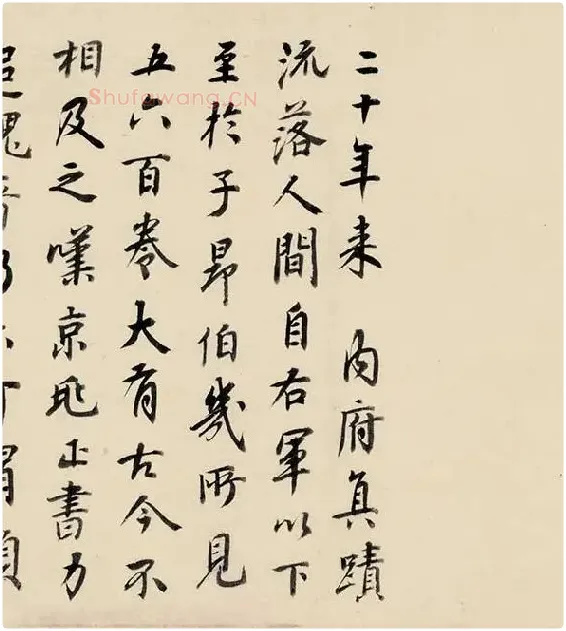 二十年来 內府真蹟
流落人間自右軍以下
至於子昂伯幾所見
五六百卷大有古今不
相及之嘆京兆正書力
Shufawang.CN